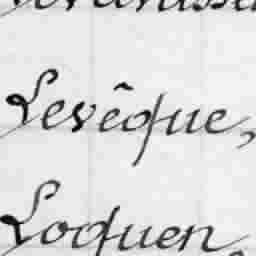 Levêque,
Loquen,